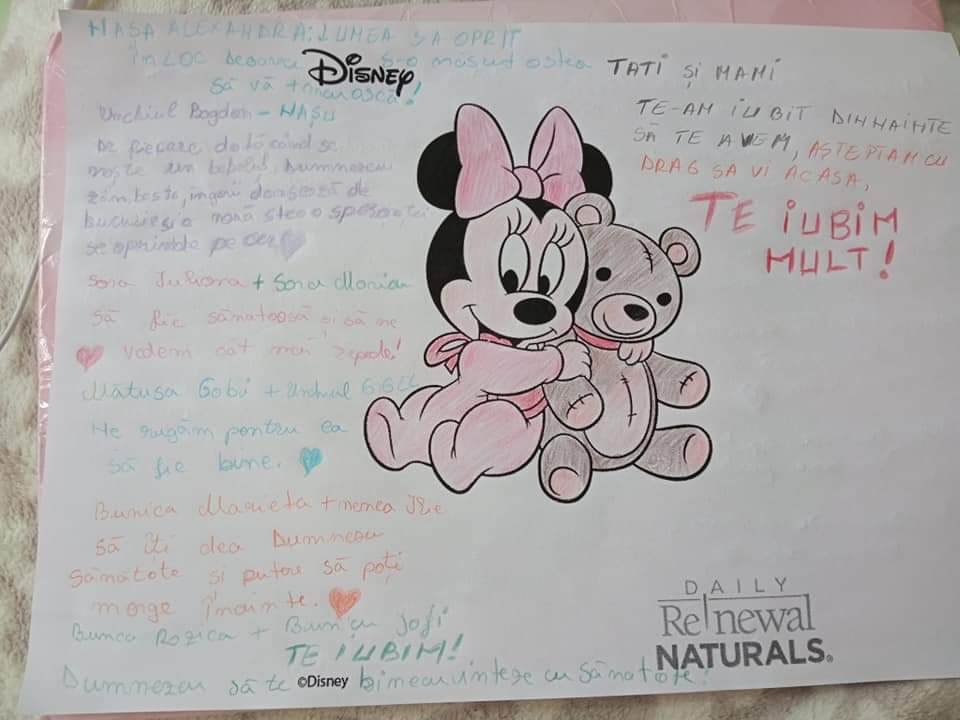 NAȘA ALEXANDRA: LUMEA SA OPRIT
ÎN LOC deoarece s-o născut ostea
Să vă +nuiască!
DISNEY
Unchiul Bogdan - NAȘU
De fiecare dată când se
naște un bebeluș, Dumnezeu
zâmbește, îngerii dansează de
bucurie și o nouă stea a speranței
se aprinde pe cer
Sora Iuliana + Sora Maria
Să fie sănătoasă și să ne
vedem cât mai repede!
Mătușa Gabi + Unchiul GiGU
Ne rugăm pentru ea
să fie bune.
Bunica Marieta + nenea Ilie
Să îți dea Dumnezeu
Sănătate și putere să poți
merge înainte.
Bunica Rozica + Bunicu Joji
TE IUBIM!
Dumnezeu să te binecuvinteze cu Sănătate!
©Disney
TATI ȘI MAMI
TE-AM IUBIT DINNAINTE
SĂ TE AVEM, AȘTEPTAM CU
DRAG SA VI ACASA,
TE IUBIM
MULT!
DAILY
Re|newal
NATURALS®